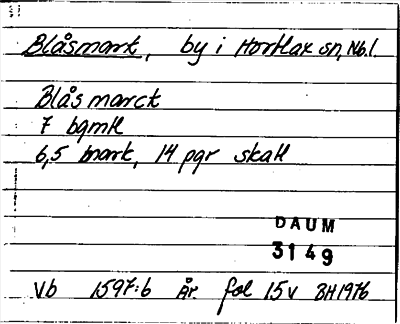 Blåsmark, by i Hortlax sn, Nb.l.
Blåsmarck
7 bgmtl
6,5 mark, 14 pgr skatt
DAUM
3149
Vb 1597:6 År fol 15v BH1976